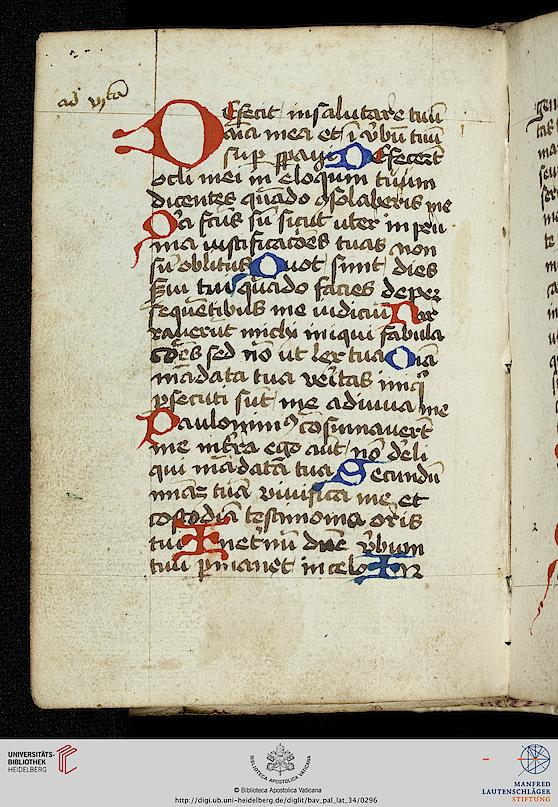 ad vitā
Defecit in salutare tuū
aīa mea et ī v̄bū tuū
sup spaui Defecerūt
ocli mei in eloquiū tuum
dicentes quādo ɔsolaberis me
Qa fcūs sū sicut uter in prui
na iustificacōes tuas non
sū oblitus Quot sunt dies
s̄ui tui quādo facies de per
sequētibus me iudiciū Nar
rauerūt michi iniqui fabula
cōēs sed nō ut lex tua Oīa
mādata tua veritas iniq̄
psecuti sūt me adiuua me
Paulominꝰ cōsūmauerūt
me in t̄ra ego aut nō d̄eli
qui mādata tua Secundū
miāz tuā viuifica me et
custodiā testimonia oris
tui Inet̄nū dn̄e v̄bum
tuū p̄manet in celo In
UNIVERSITÄTS-
BIBLIOTHEK
HEIDELBERG
BIBLIOTHECA APOSTOLICA VATICANA
© Biblioteca Apostolica Vaticana
http://digi.ub.uni-heidelberg.de/diglit/bav_pal_lat_34/0296
MANFRED
LAUTENSCHLÄGER
STIFTUNG